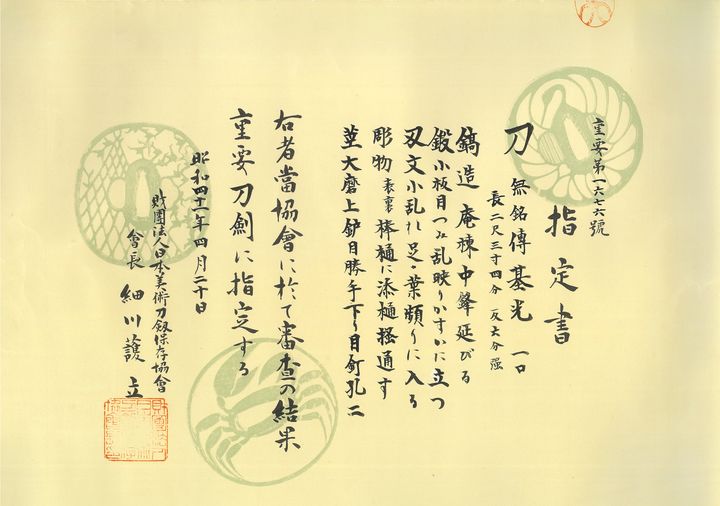 重要第一六七六號
指定書
刀 無銘傳基光 一口
長二尺三寸四分 反六分强
鎬造 庵棟 中鋒延びる
鍛小板目つみ乱映りかすかに立つ
刄文小乱れ足・葉頻りに入る
彫物 表裏棒樋に添樋掻通す
茎 大磨上 鈩目勝手下り 目釘孔二
右者當協會に於て審査の結果
重要刀劍に指定する
昭和四十二年四月二十日
財團法人日本美術刀劔保存協會
會長 細川護立